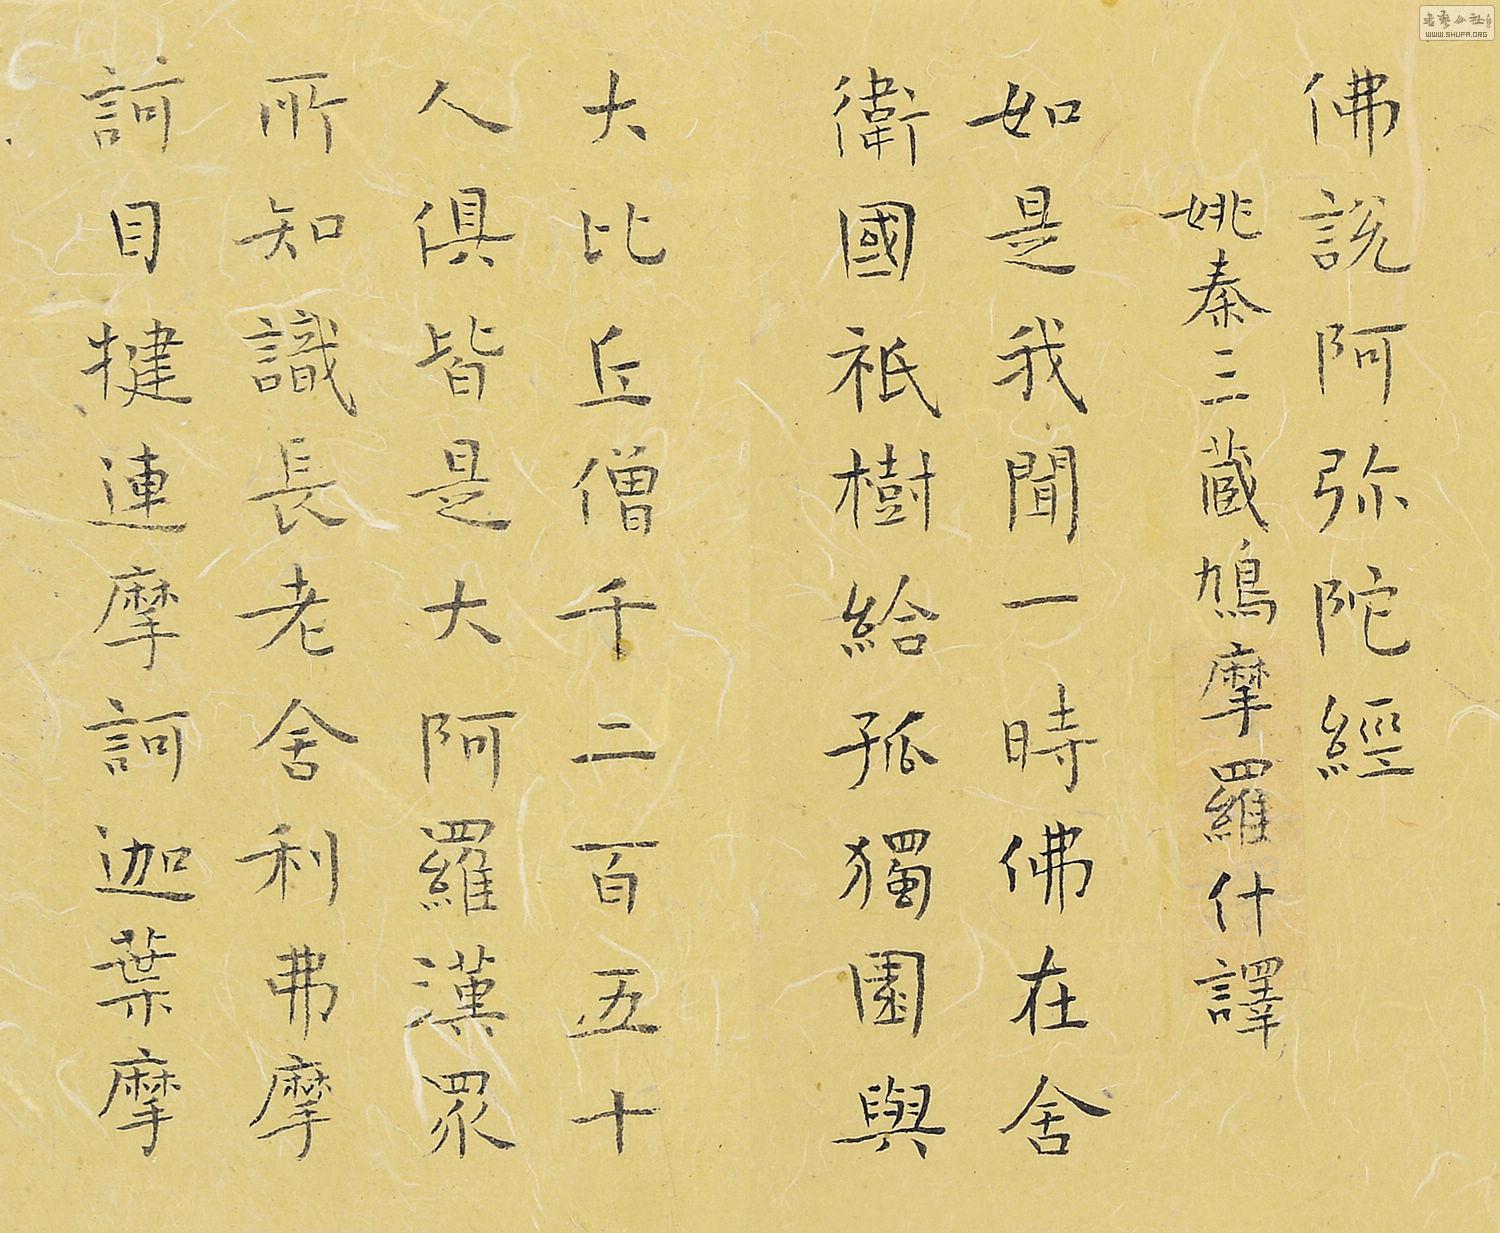 佛說阿弥陀經
姚秦三蔵鳩摩羅什譯
如是我聞一時佛在舍
衛國祇樹給孤獨園與
大比丘僧千二百五十
人俱皆是大阿羅漢眾
所知識長老舍利弗摩
訶目犍連摩訶迦葉摩
书艺公社
WWW.SHUFA.ORG